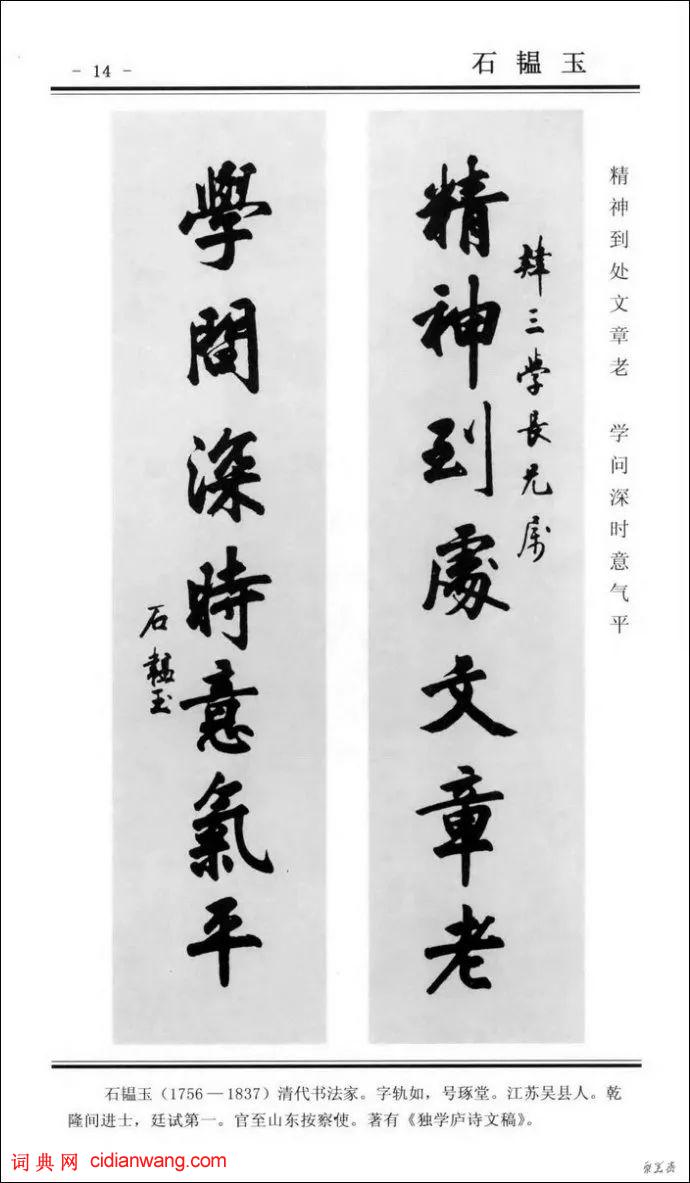 - 14 -
石韫玉
精神到处文章老 学问深时意气平
肄三學長兄屬
精神到處文章老
學問深時意氣平
石韞玉
石韫玉（1756—1837）清代书法家。字轨如，号琢堂。江苏吴县人。乾
隆间进士，廷试第一。官至山东按察使。著有《独学庐诗文稿》。
词典网 cidianwang.com